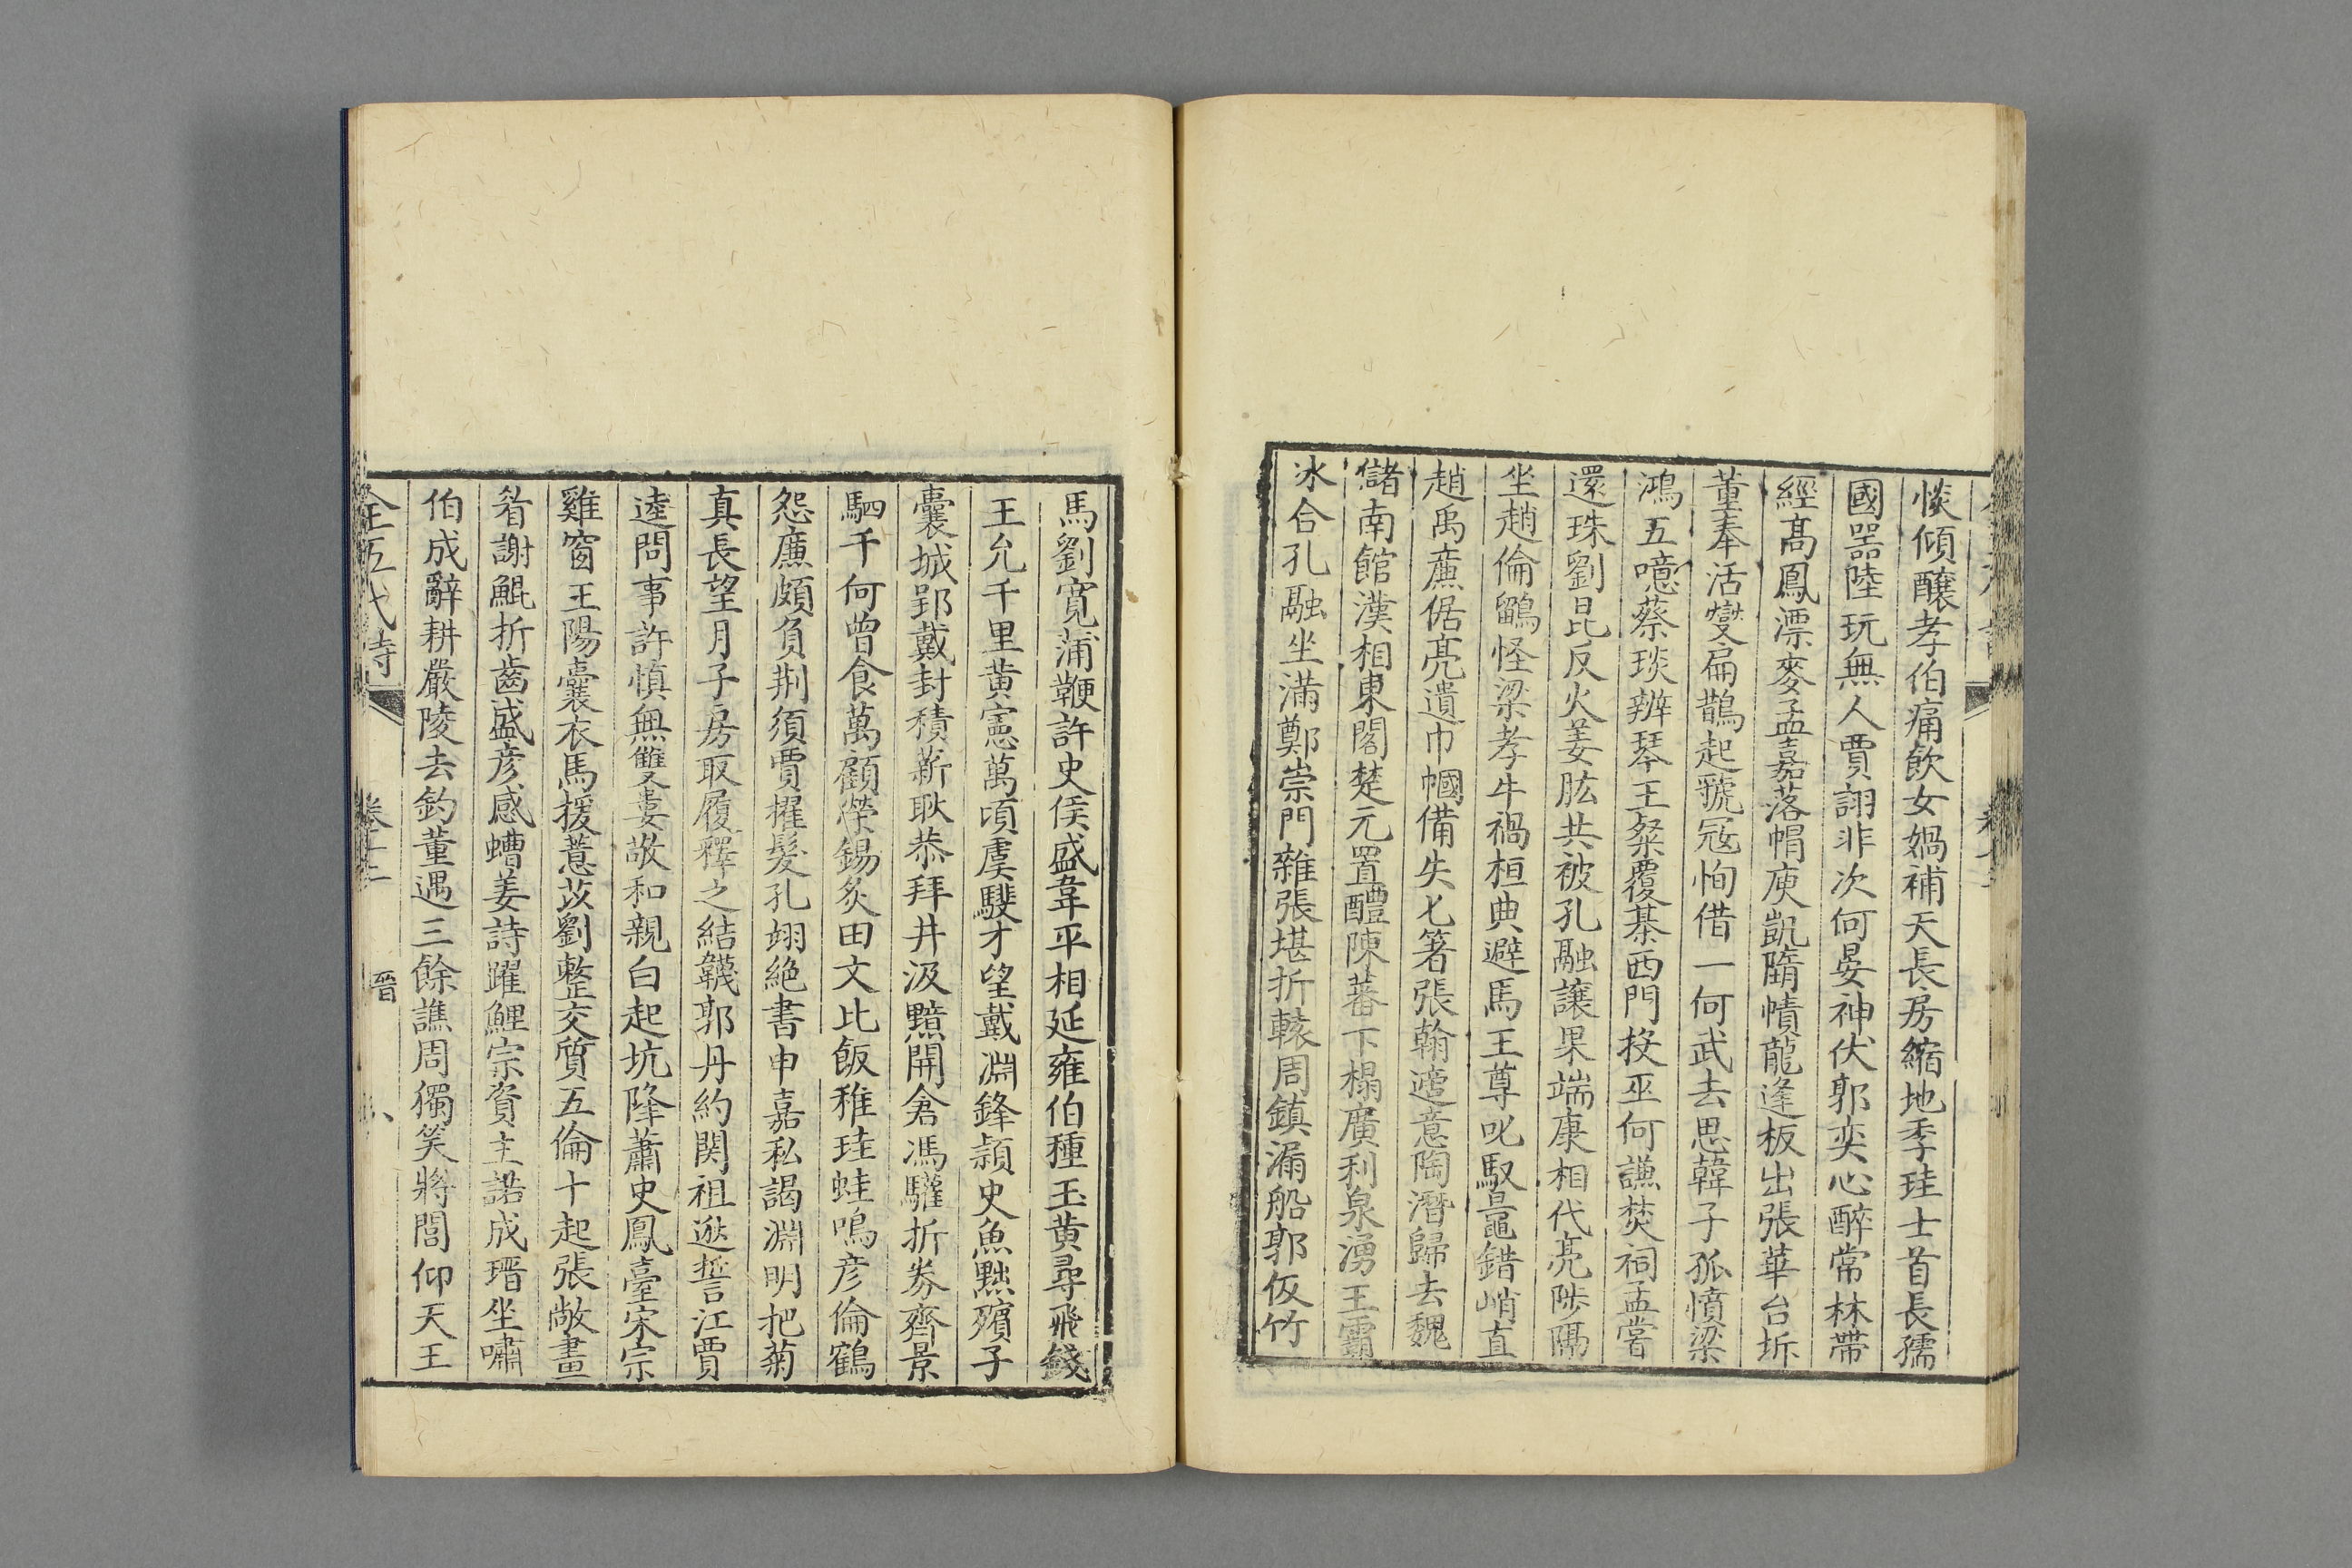 惔傾釀孝伯痛飲女媧補天長房縮地季珪士首長孺
國噐陸玩無人賈詡非次何晏神伏郭奕心醉常林帶
經高鳳漂麥孟嘉落帽庾凱隋幘龍逢板出張華台坼
董奉活燮扁鵲起虢冦恂借一何武去思韓子孤憤梁
鴻五噫蔡琰辨琴王粲覆棊西門投巫何謙焚祠孟嘗
還珠劉昆反火姜肱共被孔融讓果端康相代亮陟隔
坐趙倫鶹怪梁孝牛禍桓典避馬王尊叱馭鼂錯峭直
趙禹廉倨亮遺巾幗備失匕箸張翰適意陶潛歸去魏
儲南館漢相東閣楚元置醴陳蕃下榻廣利泉湧王霸
冰合孔融坐滿鄭崇門雜張堪折轅周鎮漏船郭伋竹
馬劉寬蒲鞭許史侯盛韋平相延雍伯種玉黄尋飛錢
王允千里黄憲萬頃虞騣才望戴淵鋒頴史魚黜殯子
囊城郢戴封積薪耿恭拜井汲黯開倉馮驩折券齊景
駟千何曾食萬顧榮錫炙田文比飯稚珪蛙鳴彦倫鶴
怨廉頗負荆須賈擢髮孔翊絶書申嘉私謁淵明把菊
真長望月子房取履釋之結韈郭丹約関祖逖誓江賈
逵問事許慎無雙婁敬和親白起坑降蕭史鳳臺宋宗
雞窗王陽囊衣馬援薏苡劉整交質五倫十起張敞畫
眷謝鯤折齒盛彦感螬姜詩躍鯉宗資主諾成瑨坐嘯
伯成辭耕嚴陵去釣董遇三餘譙周獨笑將閭仰天王
全五代詩 卷十二 晋 八